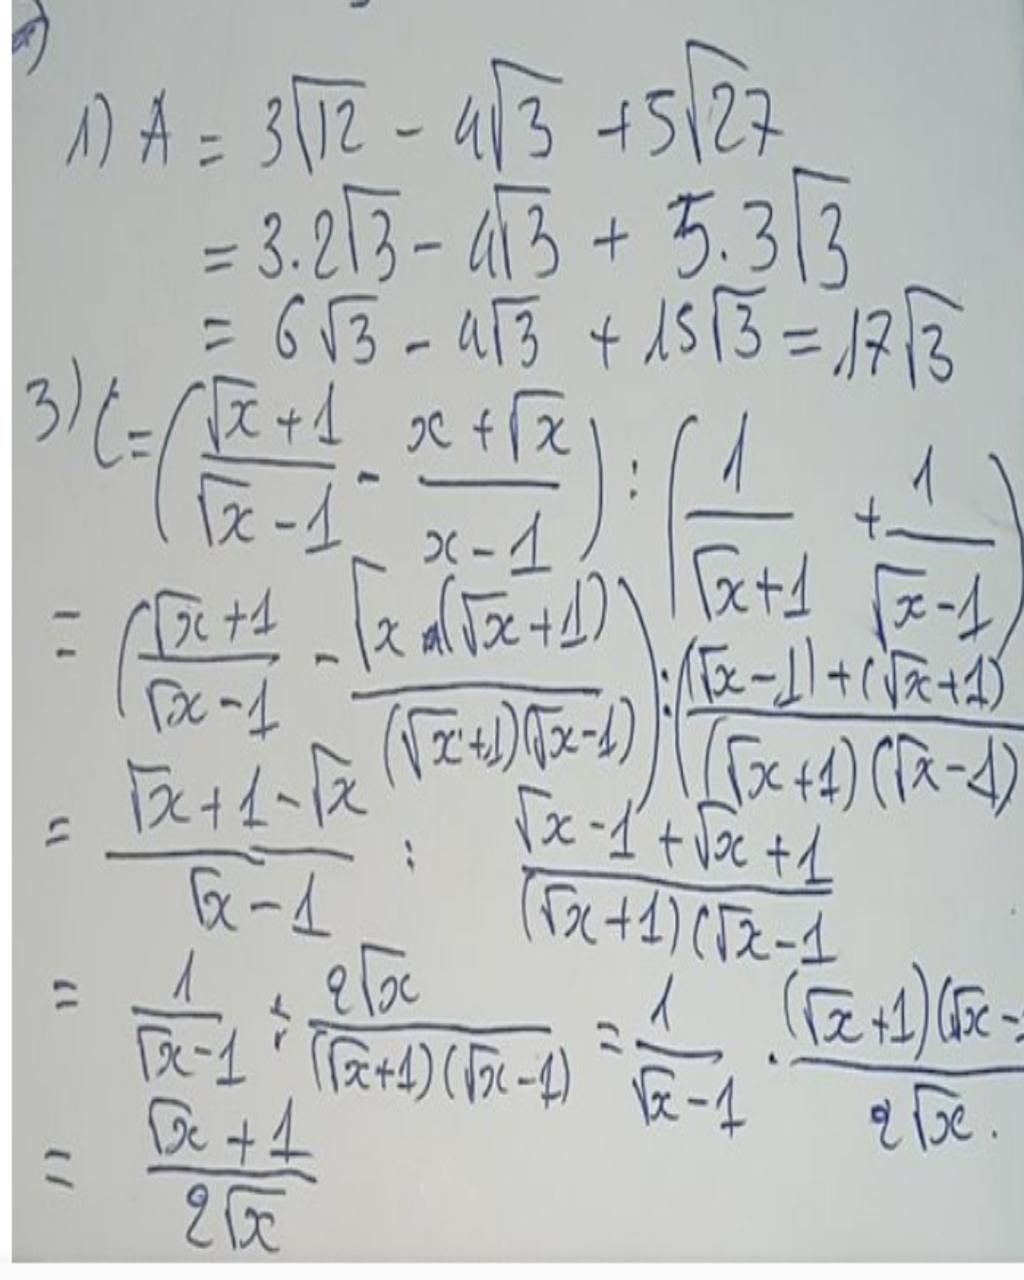 1) A = 3√12 - 4√3 + 5√27
= 3.2√3 - 4√3 + 5.3√3
= 6√3 - 4√3 + 15√3 = 17√3
3) C = ((√x + 1)/(√x - 1) - (x + √x)/(x - 1)) : (1/(√x + 1) + 1/(√x - 1))
= ((√x + 1)/(√x - 1) - √x (√x + 1)/((√x + 1)(√x - 1))) : (((√x - 1) + (√x + 1))/((√x + 1)(√x - 1)
= (√x + 1 - √x)/(√x - 1) : (√x - 1 + √x + 1)/((√x + 1)(√x - 1
= 1/(√x - 1) : 2√x/((√x + 1)(√x - 1)) = 1/(√x - 1) . (√x + 1)(√x - /2√x.
= (√x + 1)/2√x